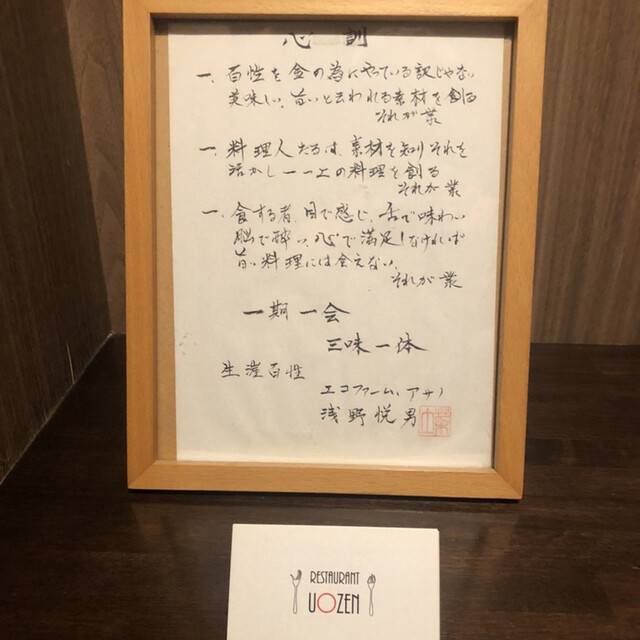 心訓
一、百性を金の為にやっている訳じゃない
美味しい、旨いと云われる素材を創る
それが業
一、料理人たるは、素材を知りそれを
活かし一一上の料理を創る
それが業
一、食する者、目で感じ、舌で味わい
脳で酔い、心で満足!なければ
旨い料理には会えない、
それが業
一期一会
三味一体
生涯百性
エコファーム、アサノ
浅野悦男
RESTAURANT
UOZEN